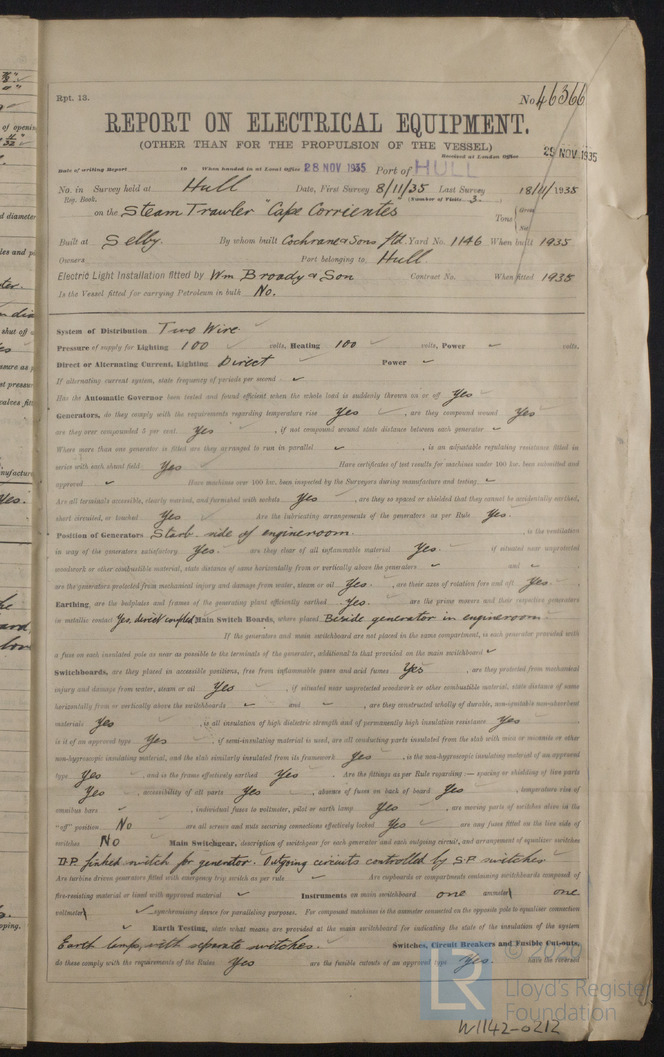 Rpt. 13.
No. 46366
REPORT ON ELECTRICAL EQUIPMENT.
(OTHER THAN FOR THE PROPULSION OF THE VESSEL)
Received at London Office 29 NOV 1935
Date of writing Report 19 When handed in at Local Office 28 NOV 1935 Port of HULL
No. in Survey held at Hull Date, First Survey 8/11/35 Last Survey 18/11/1935
Reg. Book. (Number of Visits 3.
on the Steam Trawler "Cape Corrientes Tons Gross Net
Built at Selby. By whom built Cochrane & Sons Ltd. Yard No. 1146 When built 1935
Owners Port belonging to Hull
Electric Light Installation fitted by Wm Broady & Son Contract No. When fitted 1935
Is the Vessel fitted for carrying Petroleum in bulk No.
System of Distribution Two Wire
Pressure of supply for Lighting 100 volts, Heating 100 volts, Power volts.
Direct or Alternating Current, Lighting Direct Power
If alternating current system, state frequency of periods per second
Has the Automatic Governor been tested and found efficient when the whole load is suddenly thrown on or off Yes
Generators, do they comply with the requirements regarding temperature rise Yes, are they compound wound Yes
are they over compounded 5 per cent. Yes, if not compound wound state distance between each generator
Where more than one generator is fitted are they arranged to run in parallel, is an adjustable regulating resistance fitted in
series with each shunt field Yes Have certificates of test results for machines under 100 kw. been submitted and
approved Have machines over 100 kw. been inspected by the Surveyors during manufacture and testing
Are all terminals accessible, clearly marked, and furnished with sockets Yes, are they so spaced or shielded that they cannot be accidentally earthed,
short circuited, or touched Yes Are the lubricating arrangements of the generators as per Rule Yes.
Position of Generators Starb. side of engineroom., is the ventilation
in way of the generators satisfactory Yes. are they clear of all inflammable material Yes. if situated near unprotected
woodwork or other combustible material, state distance of same horizontally from or vertically above the generators and
are the generators protected from mechanical injury and damage from water, steam or oil Yes, are their axes of rotation fore and aft Yes.
Earthing, are the bedplates and frames of the generating plant efficiently earthed Yes. are the prime movers and their respective generators
in metallic contact Yes, direct coupled Main Switch Boards, where placed Beside generator in engineroom
If the generators and main switchboard are not placed in the same compartment, is each generator provided with
a fuse on each insulated pole as near as possible to the terminals of the generator, additional to that provided on the main switchboard
Switchboards, are they placed in accessible positions, free from inflammable gases and acid fumes Yes, are they protected from mechanical
injury and damage from water, steam or oil Yes, if situated near unprotected woodwork or other combustible material, state distance of same
horizontally from or vertically above the switchboards and, are they constructed wholly of durable, non-ignitable non-absorbent
materials Yes, is all insulation of high dielectric strength and of permanently high insulation resistance Yes
is it of an approved type Yes, if semi-insulating material is used, are all conducting parts insulated from the slab with mica or micanite or other
non-hygroscopic insulating material, and the slab similarly insulated from its framework Yes, is the non-hygroscopic insulating material of an approved
type Yes, and is the frame effectively earthed Yes. Are the fittings as per Rule regarding:— spacing or shielding of live parts
Yes, accessibility of all parts Yes, absence of fuses on back of board Yes, temperature rise of
omnibus bars, individual fuses to voltmeter, pilot or earth lamp Yes, are moving parts of switches alive in the
"off" position No are all screws and nuts securing connections effectively locked Yes are any fuses fitted on the live side of
switches No Main Switchgear, description of switchgear for each generator and each outgoing circuit, and arrangement of equalizer switches
D.P. linked switch for generator. Outgoing circuits controlled by S.P. switches
Are turbine driven generators fitted with emergency trip switch as per rule Are cupboards or compartments containing switchboards composed of
fire-resisting material or lined with approved material Instruments on main switchboard one ammeter one
voltmeter synchronising device for paralleling purposes. For compound machines is the ammeter connected on the opposite pole to equaliser connection
Earth Testing, state what means are provided at the main switchboard for indicating the state of the insulation of the system
Earth lamps, with separate switches. Switches, Circuit Breakers and Fusible Cut-outs,
do these comply with the requirements of the Rules Yes are the fusible cutouts of an approved type Yes. have the reversal
© 2020
LR
Lloyd's Register
Foundation
W1142-0212